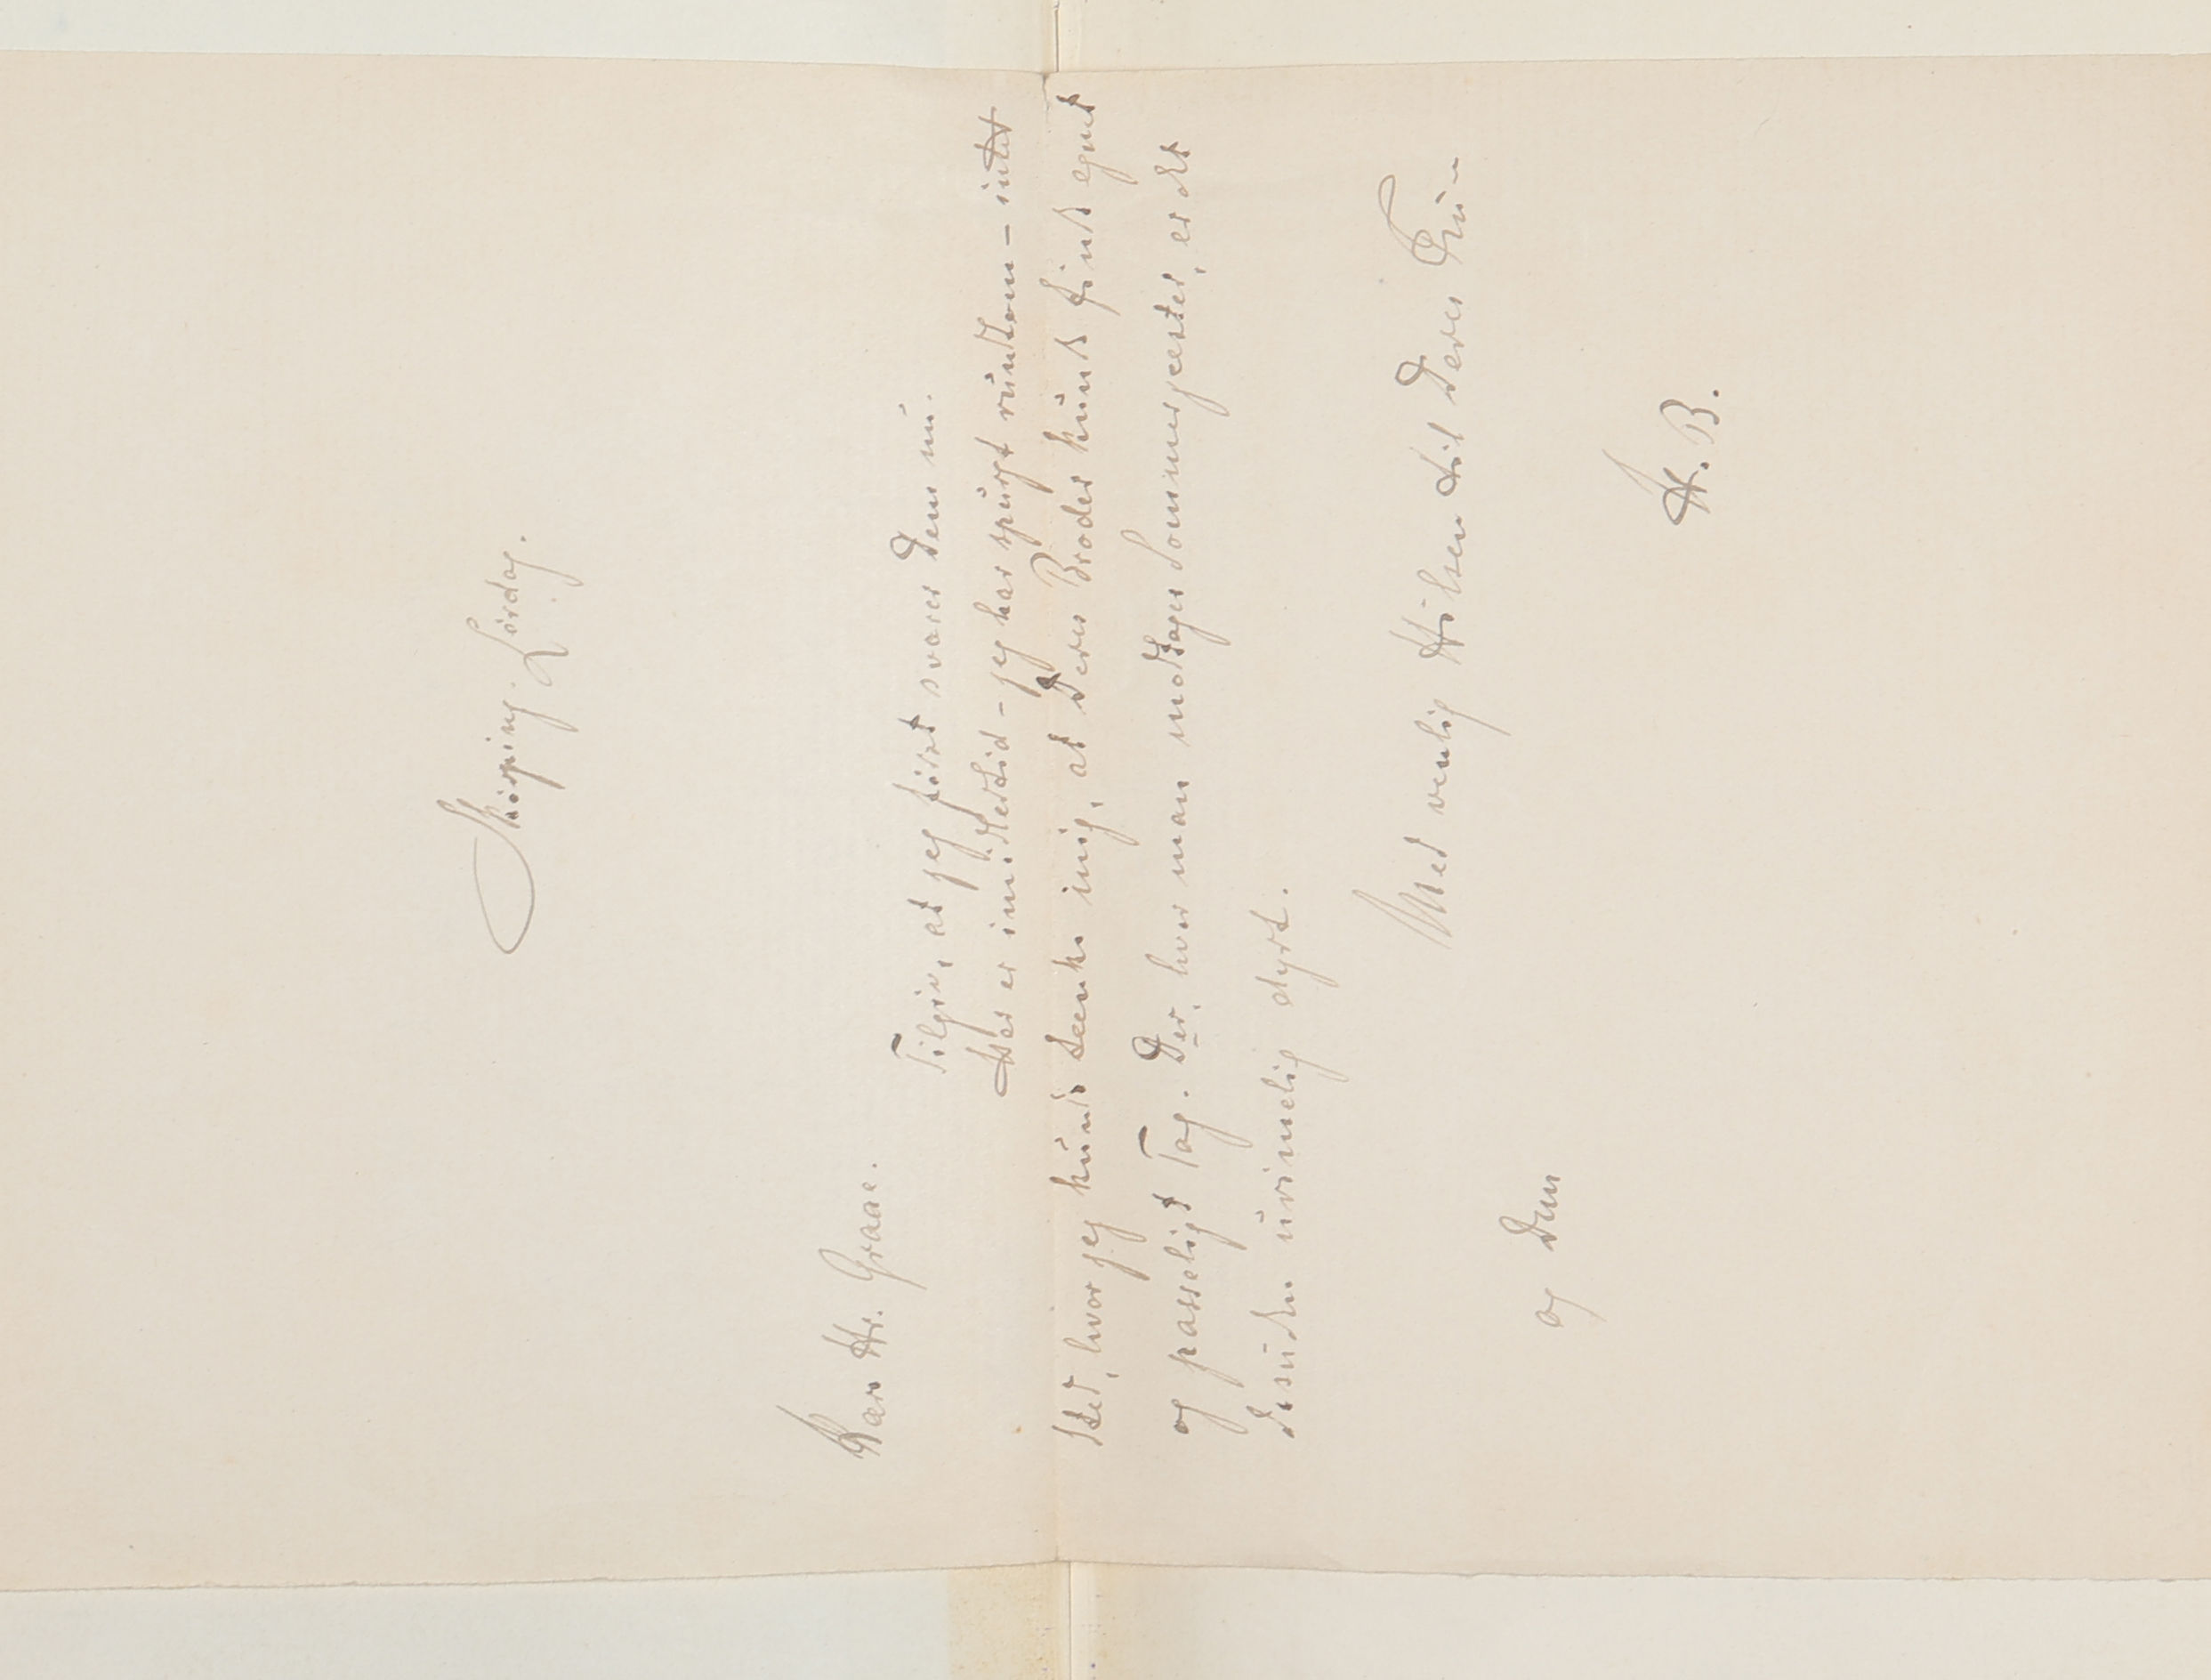 Skørping. Lørdag.
Kære Hr. Graae.
Tilgiv, at jeg først svarer Dem nu.
Her er imidlertid – jeg har spurgt rundtom – intet
Sted, hvor jeg kunde tænke mig, at Deres Broder kunde finde egnet
og passeligt Tag. Der, hvor man modtager Sommergæster, er det
desuden urimelig dyrt.
Med venlig Hilsen til Deres Frue
og Dem
H. B.